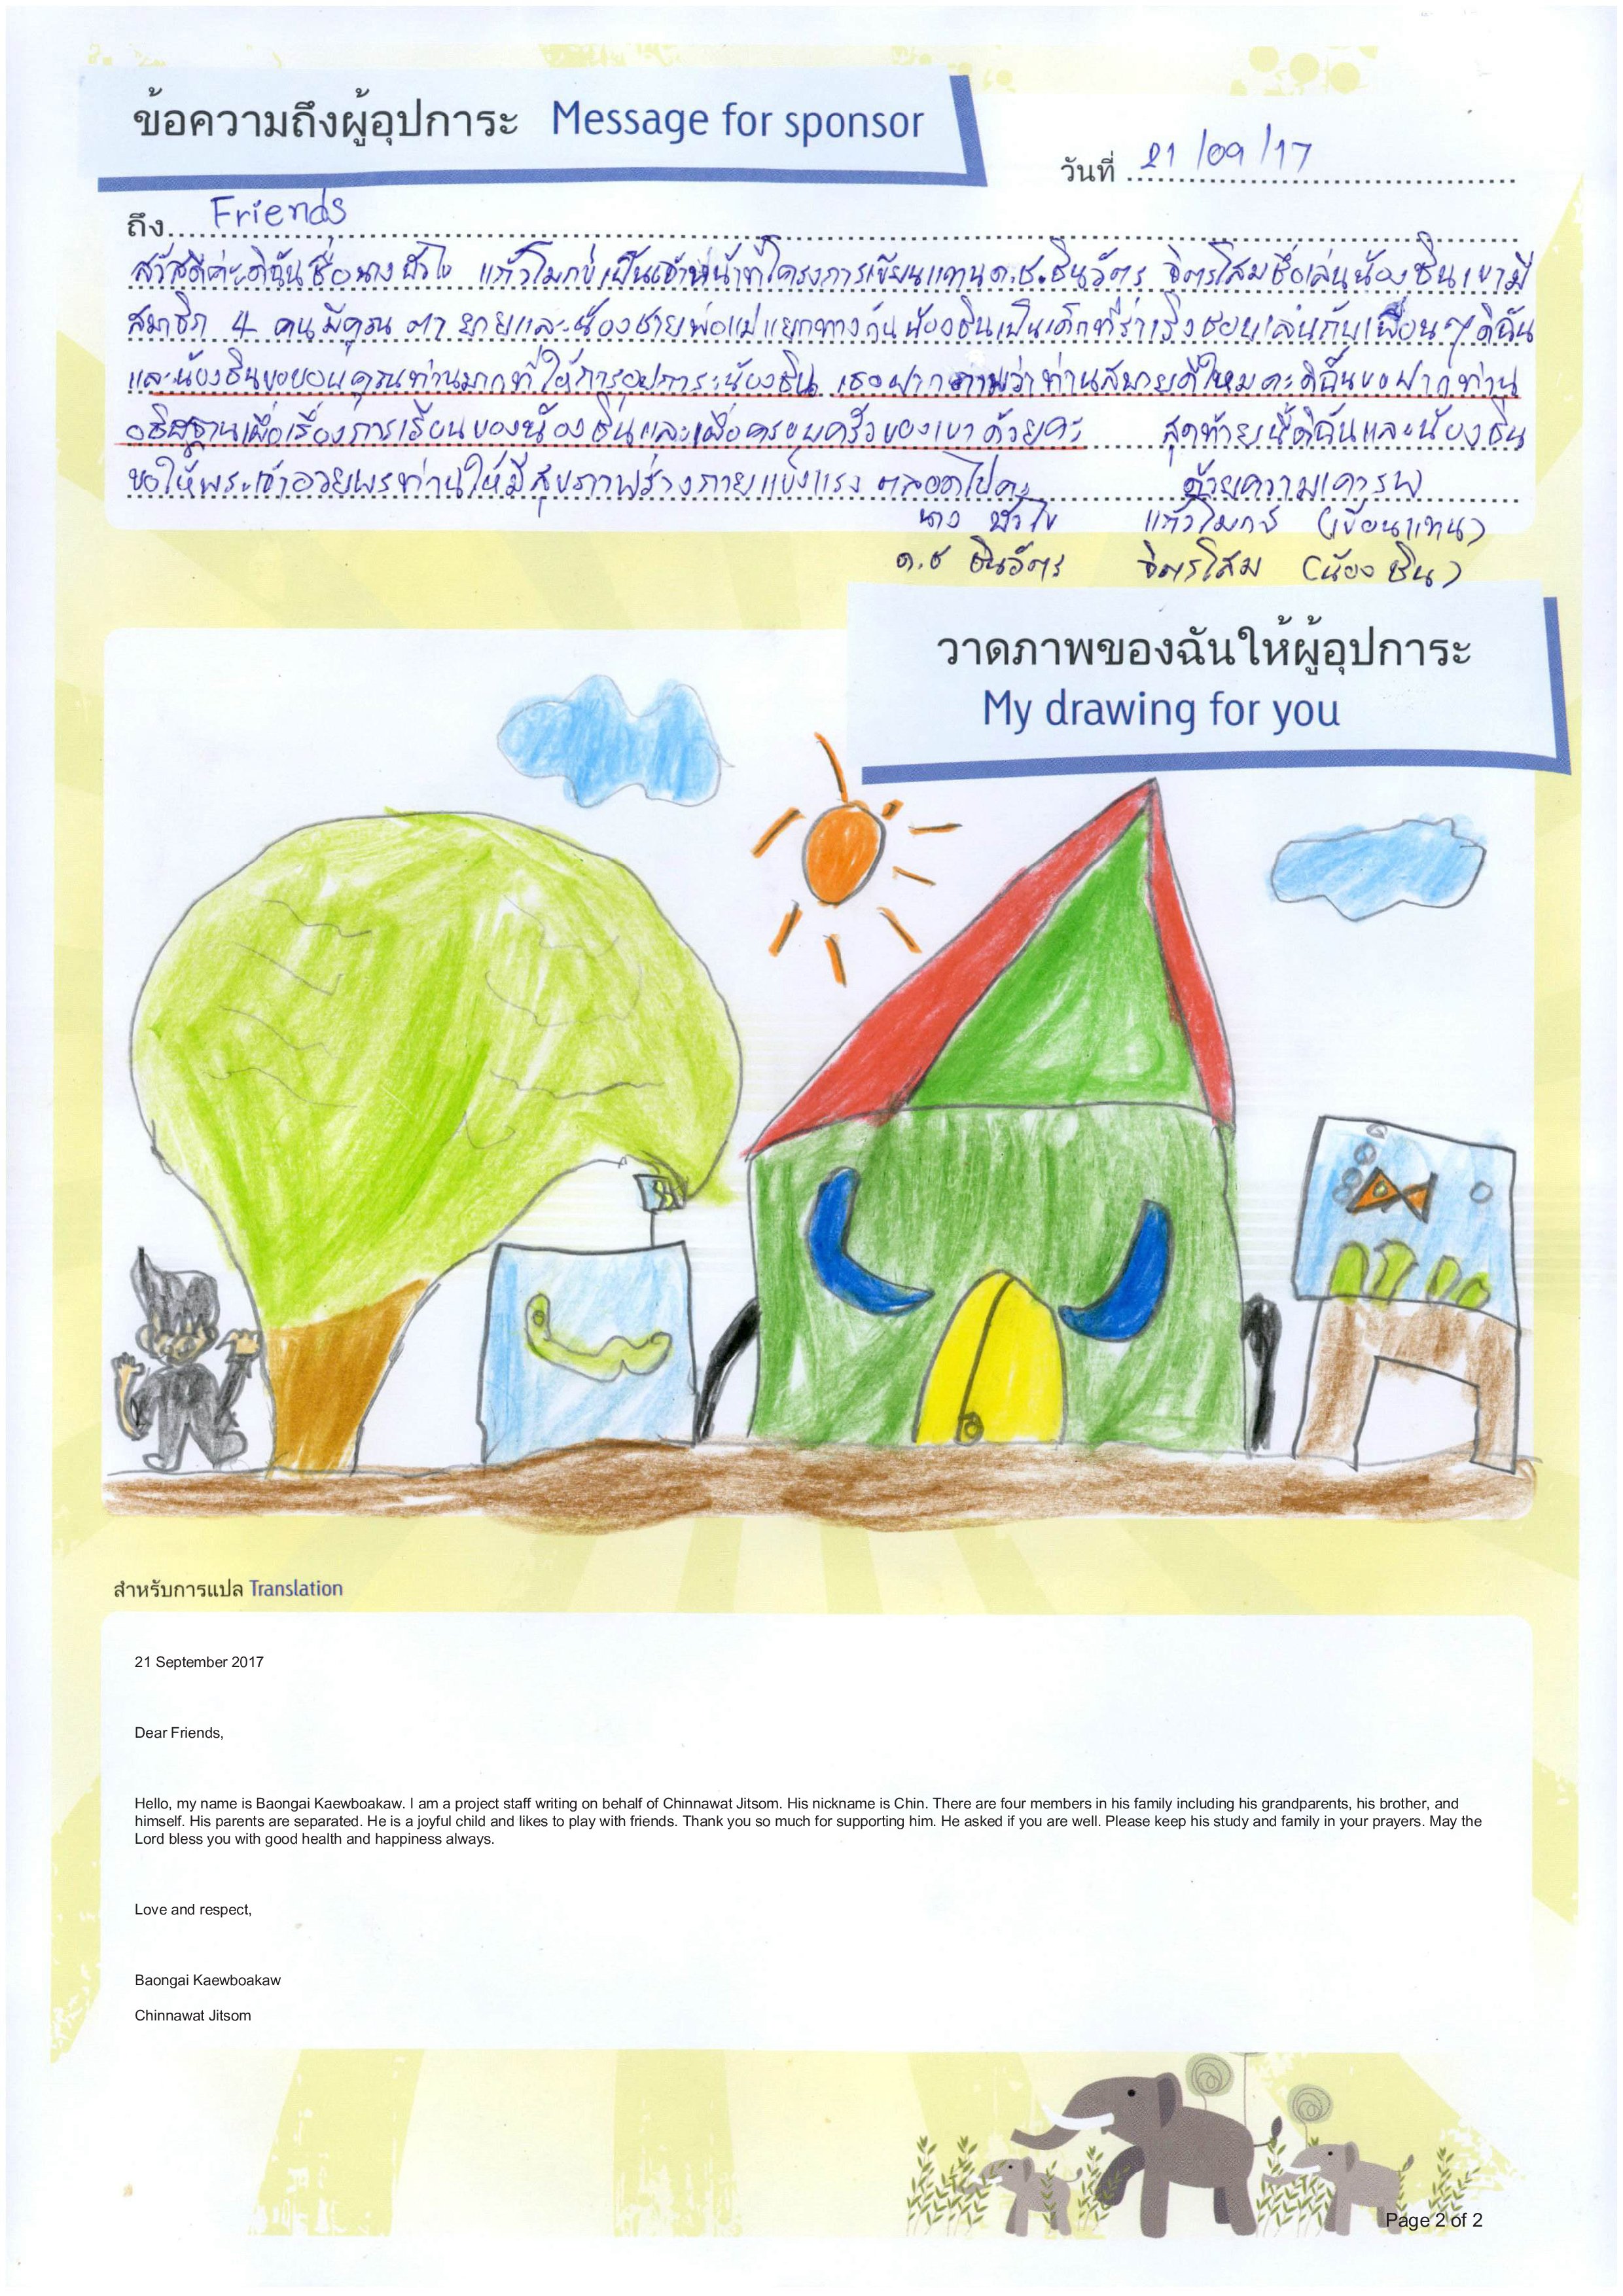 ข้อความถึงผู้อุปการะ Message for sponsor
วันที่ 21/09/17
ถึง Friends
สวัสดีค่ะดิฉันชื่อนาง บัวไง แก้วโบกข์เป็นเจ้าหน้าที่โครงการเขียนแทนด.ช.ชินวัตร จิตรโสมชื่อเล่นน้องชินเขามี
สมาชิก 4 คนมีคุณ ตา ยายและน้องชายพ่อแม่แยกทางกันน้องชินเป็นเด็กที่ร่าเริงชอบเล่นกับเพื่อนๆดิฉัน
และน้องชินขอขอบคุณท่านมากที่ให้การอุปการะน้องชิน เธอฝากถามว่าท่านสบายดีไหมคะดิฉันขอฝากท่าน
อธิษฐานเผื่อเรื่องการเรียนของน้องชินและเผื่อครอบครัวของเขาด้วยคะ สุดท้ายนี้ดิฉันและน้องชิน
ขอให้พระเจ้าอวยพรท่านให้มีสุขภาพร่างกายแข็งแรง ตลอดไปคะ ด้วยความเคารพ
นาง แก้วโบกข์ (เขียนแทน)
ด.ช ชินวัตร จิตรโสม (น้อง ชิน)
วาดภาพของฉันให้ผู้อุปการะ
My drawing for you
สำหรับการแปล Translation
21 September 2017
Dear Friends,
Hello, my name is Baongai Kaewboakaw. I am a project staff writing on behalf of Chinnawat Jitsom. His nickname is Chin. There are four members in his family including his grandparents, his brother, and
himself. His parents are separated. He is a joyful child and likes to play with friends. Thank you so much for supporting him. He asked if you are well. Please keep his study and family in your prayers. May the
Lord bless you with good health and happiness always.
Love and respect,
Baongai Kaewboakaw
Chinnawat Jitsom
Page 2 of 2